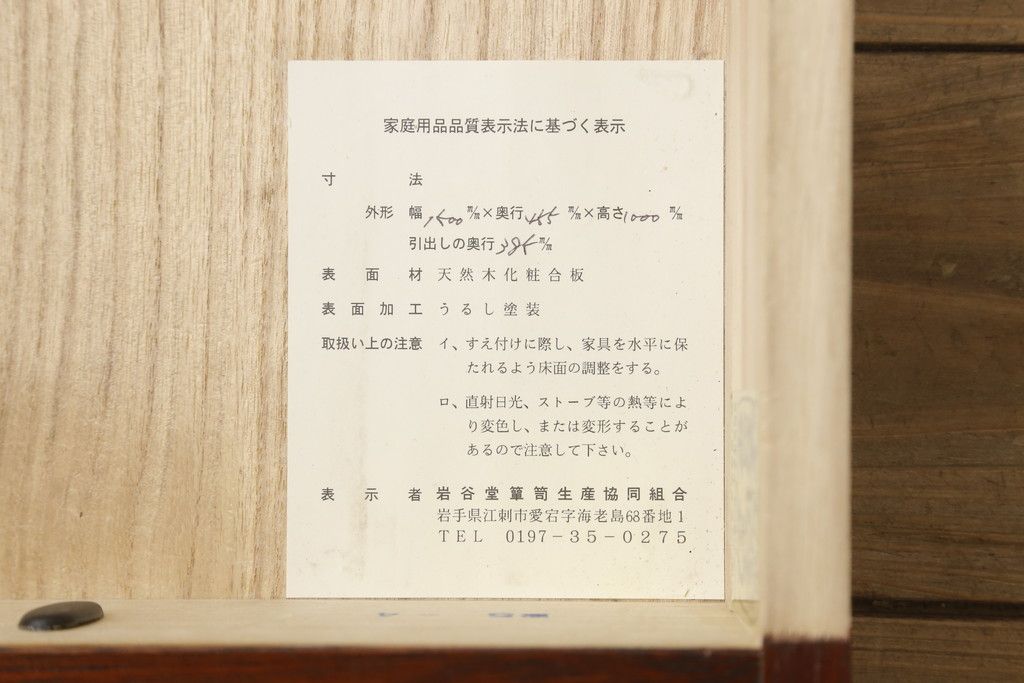 家庭用品品質表示法に基づく表示
寸法
外形 幅 1500 ㎜×奥行 455 ㎜×高さ 1000 ㎜
引出しの奥行 385 ㎜
表面材 天然木化粧合板
表面加工 うるし塗装
取扱い上の注意 イ、すえ付けに際し、家具を水平に保
たれるよう床面の調整をする。
ロ、直射日光、ストーブ等の熱等によ
り変色し、または変形することが
あるので注意して下さい。
表示者 岩谷堂簞笥生産協同組合
岩手県江刺市愛宕字海老島68番地1
TEL 0197-35-0275